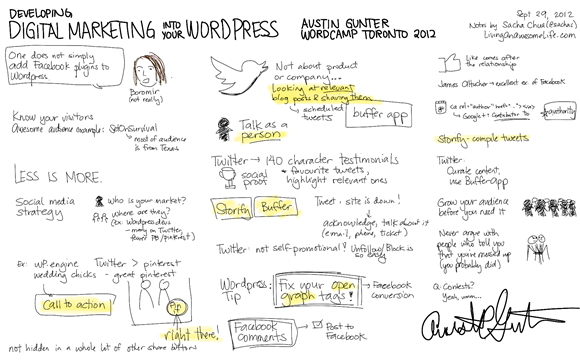 DEVELOPING
DIGITAL MARKETING INTO YOUR WORDPRESS
AUSTIN GUNTER
WORDCAMP TORONTO 2012
Sept 29, 2012
Notes by Sacha Chua (@sachac)
LivingAnAwesomeLife.com
One does not simply
add Facebook plugins to
Wordpress
Boromir
(not really)
Know your visitors
Awesome audience example: SXSWSurvival
most of audience
is from Texas
LESS IS MORE.
Social media
strategy
Who is your market?
Where are they?
(ex: Wordpress devs
- mainly on Twitter,
Ex: WP engine Twitter > pinterest
wedding chicks - great pinterest
Call to action
right there!
not hidden in a whole lot of other share buttons
Not about product
or company...
Looking at relevant
blog posts & sharing them
scheduled
tweets
buffer app
Talk as a
person
Twitter → 140 character testimonials
social
proof
+ favourite tweets,
highlight relevant ones
Storify Buffer
Tweet: site is down!
acknowledge, talk about it
(email, phone, ticket)
Twitter: not self-promotional! Unfollow/Block is
so easy
Wordpress
Tip
fix your open
graph tags!
→ Facebook
conversion
Facebook
comments
→ Post to
Facebook
Like comes after
the relationship
James Altucher → excellent ex. of Facebook
→ Google+: Contributor to
Storify - compile tweets
Twitter:
Curate content,
use BufferApp
Grow your audience
before you need it
Never argue with
people who tell you
that you've messed up
(you probably did)
Q: Contests?
Yeah, umm...